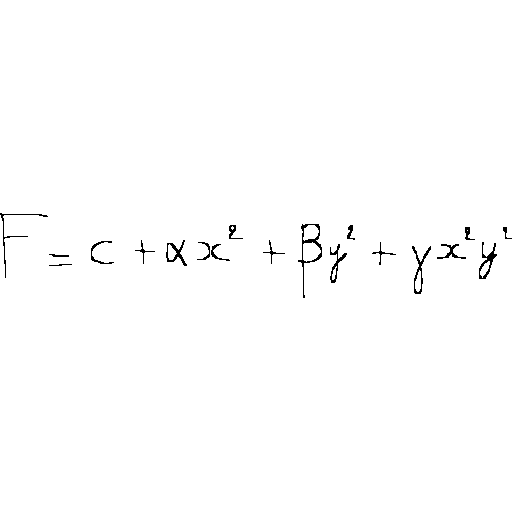 F = c + αx² + βy² + γx²y²